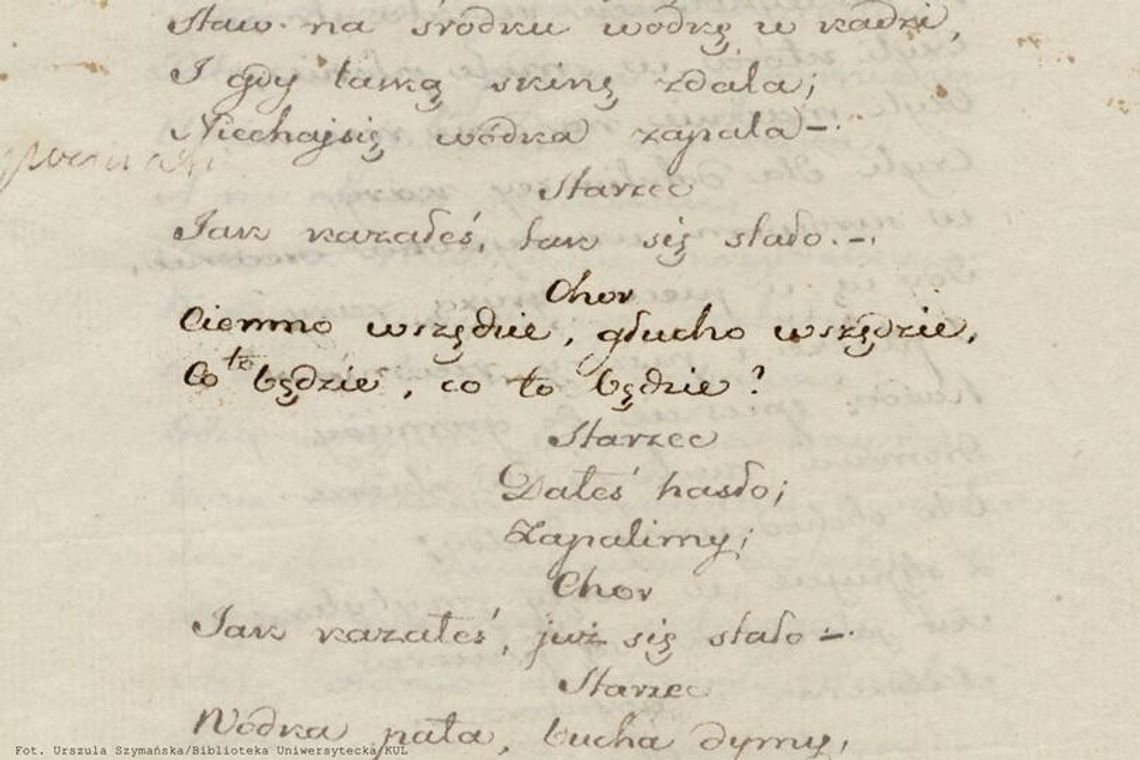 Staw na środku wódkę w kadzi,
I gdy laską skinę zdala;
Niechajsię wódka zapala —.
Starzec
Jak kazałeś, tak się stało. —.
Chor
Ciemno wszędzie, głucho wszędzie,
Co to będzie, co to będzie?
Starzec
Dałeś hasło;
Zapalimy;
Chor
Jak kazałeś, już się stało —.
Starzec
Wódka pała, bucha dymy,
Fot. Urszula Szymańska/Biblioteka Uniwersytecka/KUL